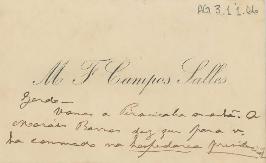 AG 3.1.1.66
M F Campos Salles
Gordo —
Vamos a Piracicaba amanhã. O
Moraes Barros diz que para v.
ha commodo na hospedaria